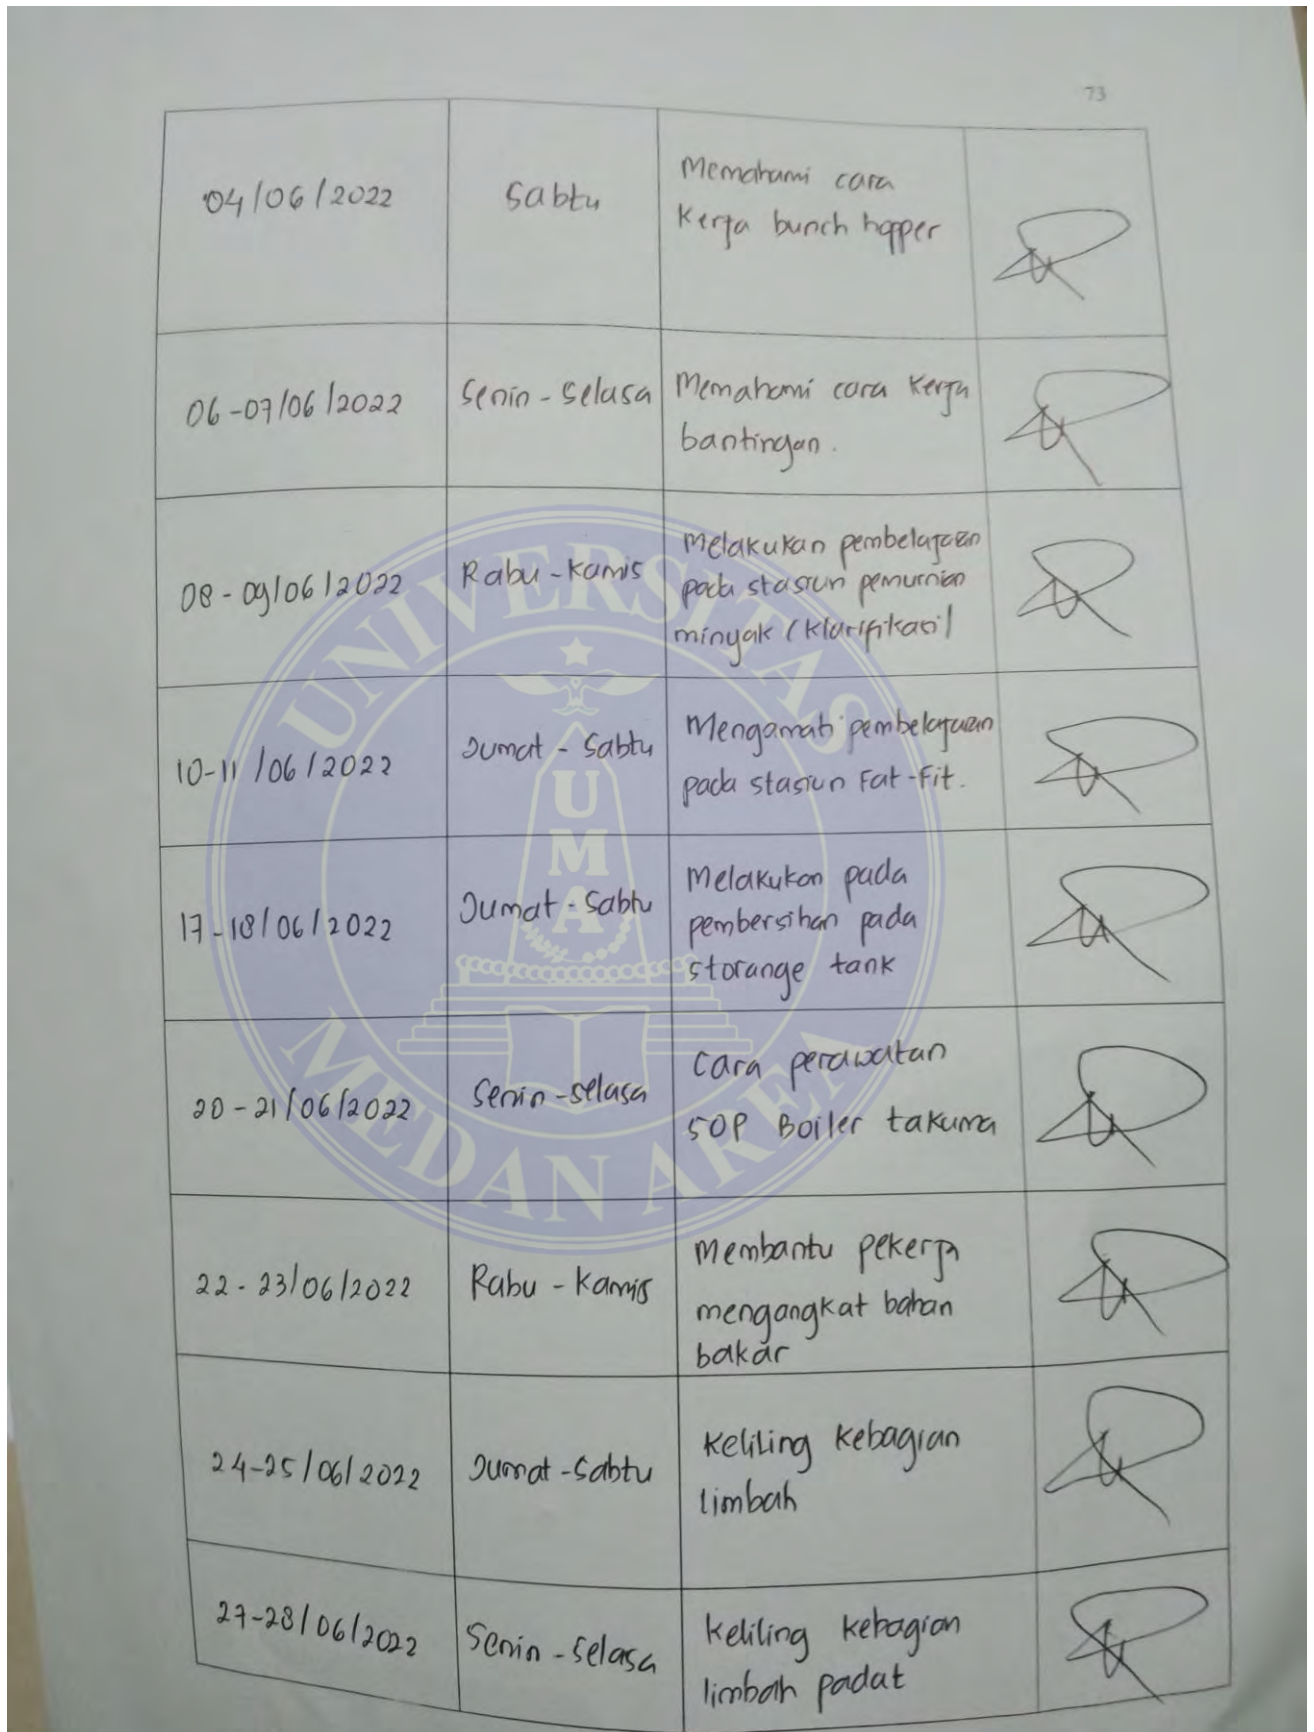 73
04/06/2022 Sabtu Memahami cara
Kerja bunch hopper
06-07/06/2022 Senin - Selasa Memahami cara Kerja
bantingan.
08-09/06/2022 Rabu - Kamis Melakukan pembelajaan
pada stasiun pemurnian
minyak (Klarifikasi)
10-11/06/2022 Jumat - Sabtu Mengamati pembelajaan
pada stasiun Fat-Fit.
17-18/06/2022 Jumat - Sabtu Melakukan pada
pembersihan pada
storange tank
20-21/06/2022 Senin - selasa Cara perawatan
SOP Boiler takuma
22-23/06/2022 Rabu - Kamis Membantu pekerja
mengangkat bahan
bakar
24-25/06/2022 Jumat - Sabtu Keliling kebagian
limbah
27-28/06/2022 Senin - Selasa Keliling kebagian
limbah padat
UNIVERSITAS
UMA
MEDAN AREA